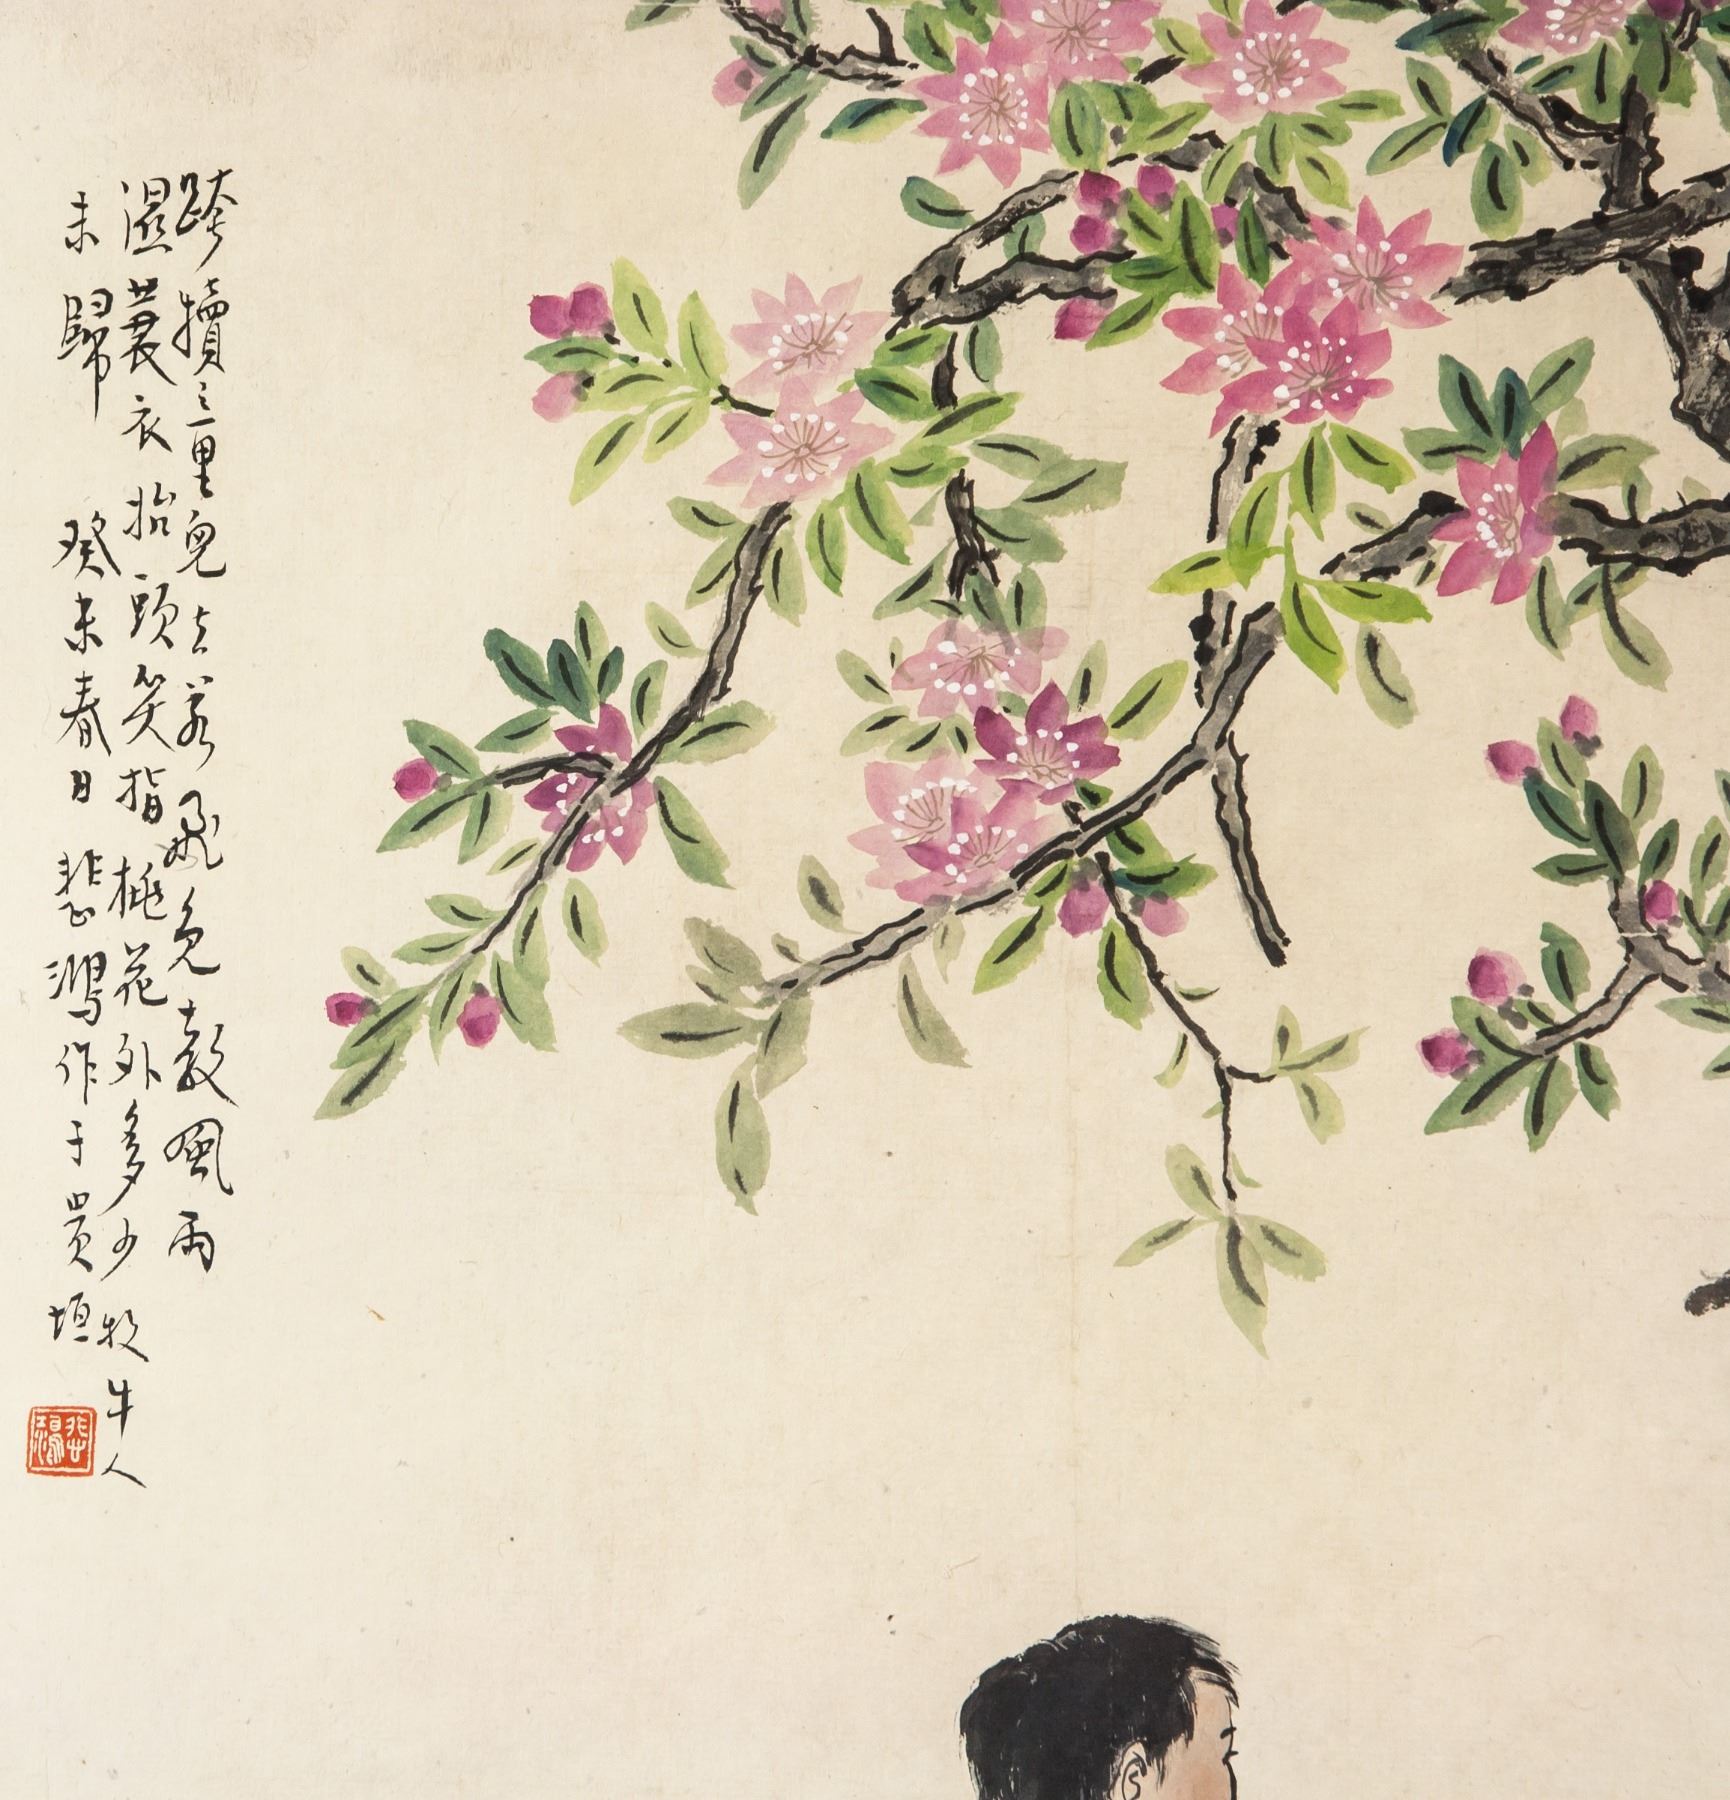 跨犢童兒去若飛免教風雨
濕蓑衣抬頭笑指桃花外多少牧牛人
未歸 癸未春日悲鴻作于貴垣
悲鴻